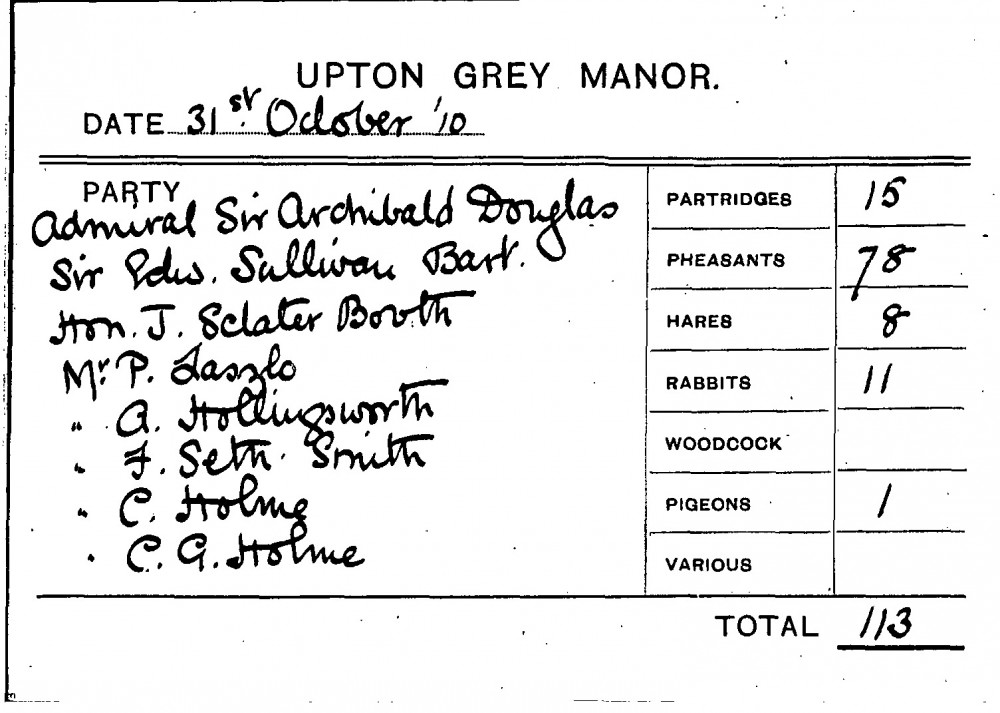 UPTON GREY MANOR.
DATE 31st October '10
PARTY
Admiral Sir Archibald Douglas
Sir Edw. Sullivan Bart.
Hon. J. Sclater Booth
Mr. P. Laszlo
" A. Hollingsworth
" F. Seth. Smith
" C. Holme
" C. G. Holme
PARTRIDGES 15
PHEASANTS 78
HARES 8
RABBITS 11
WOODCOCK
PIGEONS 1
VARIOUS
TOTAL 113